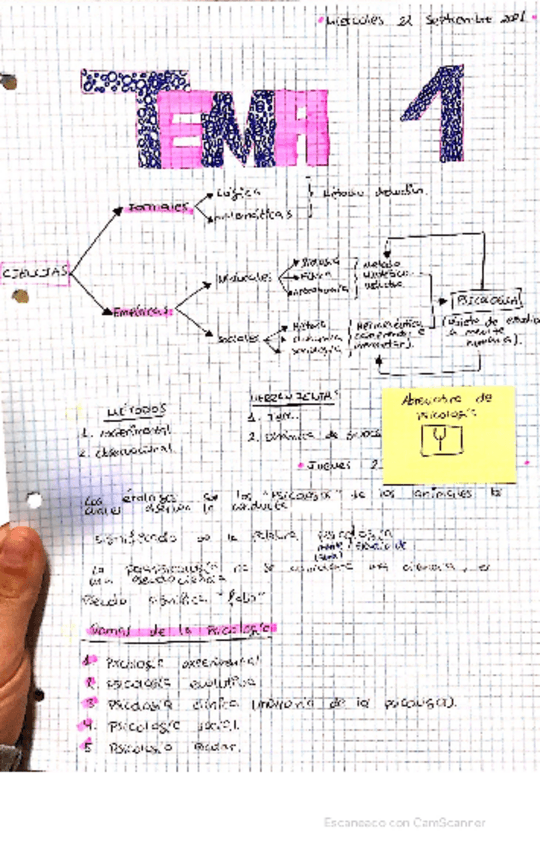 Miércoles 22 Septiembre 2021
TEMA 1
CIENCIAS
Formales
Lógica
Matemáticas
Método
Empíricas
Naturales
Biología
Física
Astronomía
Método
Sociales
Historia
Economía
Sociología
Hermenéutica
PSICOLOGÍA
(objeto de estudio
la mente
humana).
MÉTODOS
1. experimental
2. Observacional
HERRAMIENTAS
1.
2. Dinámica de grupos
Abreviatura de
psicología
Ψ
Jueves 2
Los etólogos son los "psicólogos" de los animales
cuales la conducta
significado de la palabra psicología
mente estudio de
La parapsicología no se considera una ciencia, es
una pseudociencia
Pseudo significa "falso"
Ramas de la Psicología
1 Psicología experimental
2 Psicología evolutiva
3 Psicología clínica de la psicología).
4. Psicología social.
5 Psicología escolar.
Escaneado con CamScanner